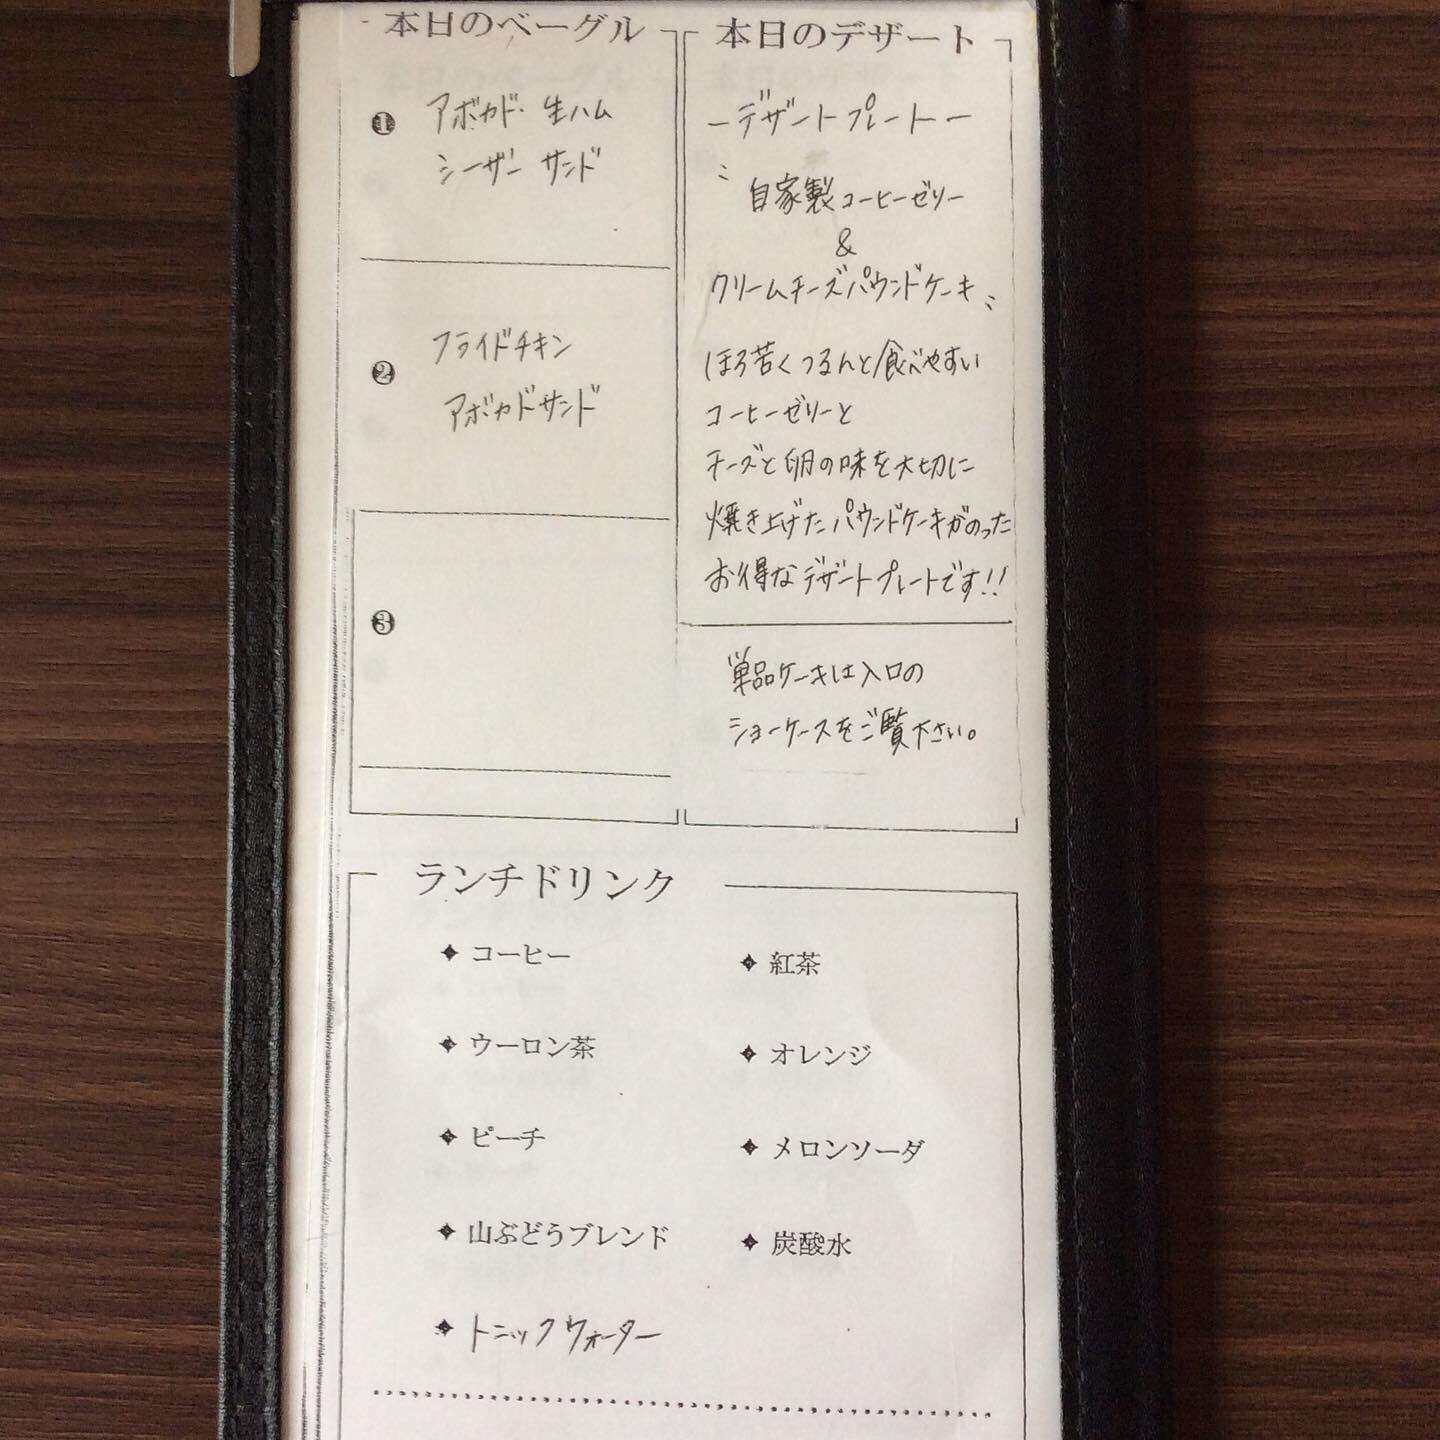 本日のベーグル
❶ アボカド・生ハム
シーザー サンド
❷ フライドチキン
アボカドサンド
❸
本日のデザート
ーデザートプレートー
〝自家製コーヒーゼリー
&
クリームチーズパウンドケーキ〟
ほろ苦くつるんと食べやすい
コーヒーゼリーと
チーズと卵の味を大切に
焼き上げたパウンドケーキがのった
お得なデザートプレートです!!
単品ケーキは入口の
ショーケースをご覧下さい。
ランチドリンク
コーヒー
紅茶
ウーロン茶
オレンジ
ピーチ
メロンソーダ
山ぶどうブレンド
炭酸水
トニックウォーター